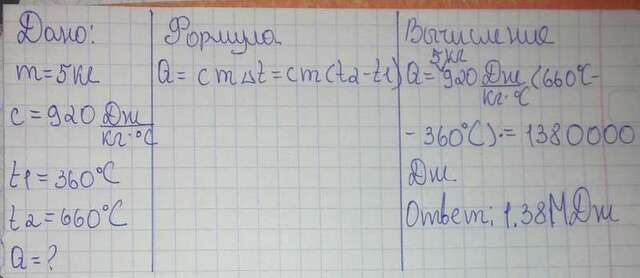 Дано:
m = 5 кг
c = 920 Дж/кг·°C
t1 = 360°C
t2 = 660°C
Q = ?
Формула
Q = cmΔt = cm(t2-t1)
Вычисление
5кг
Q = 920 Дж/кг·°C (660°C-
- 360°C)·= 1380000
Дж
Ответ: 1.38МДж